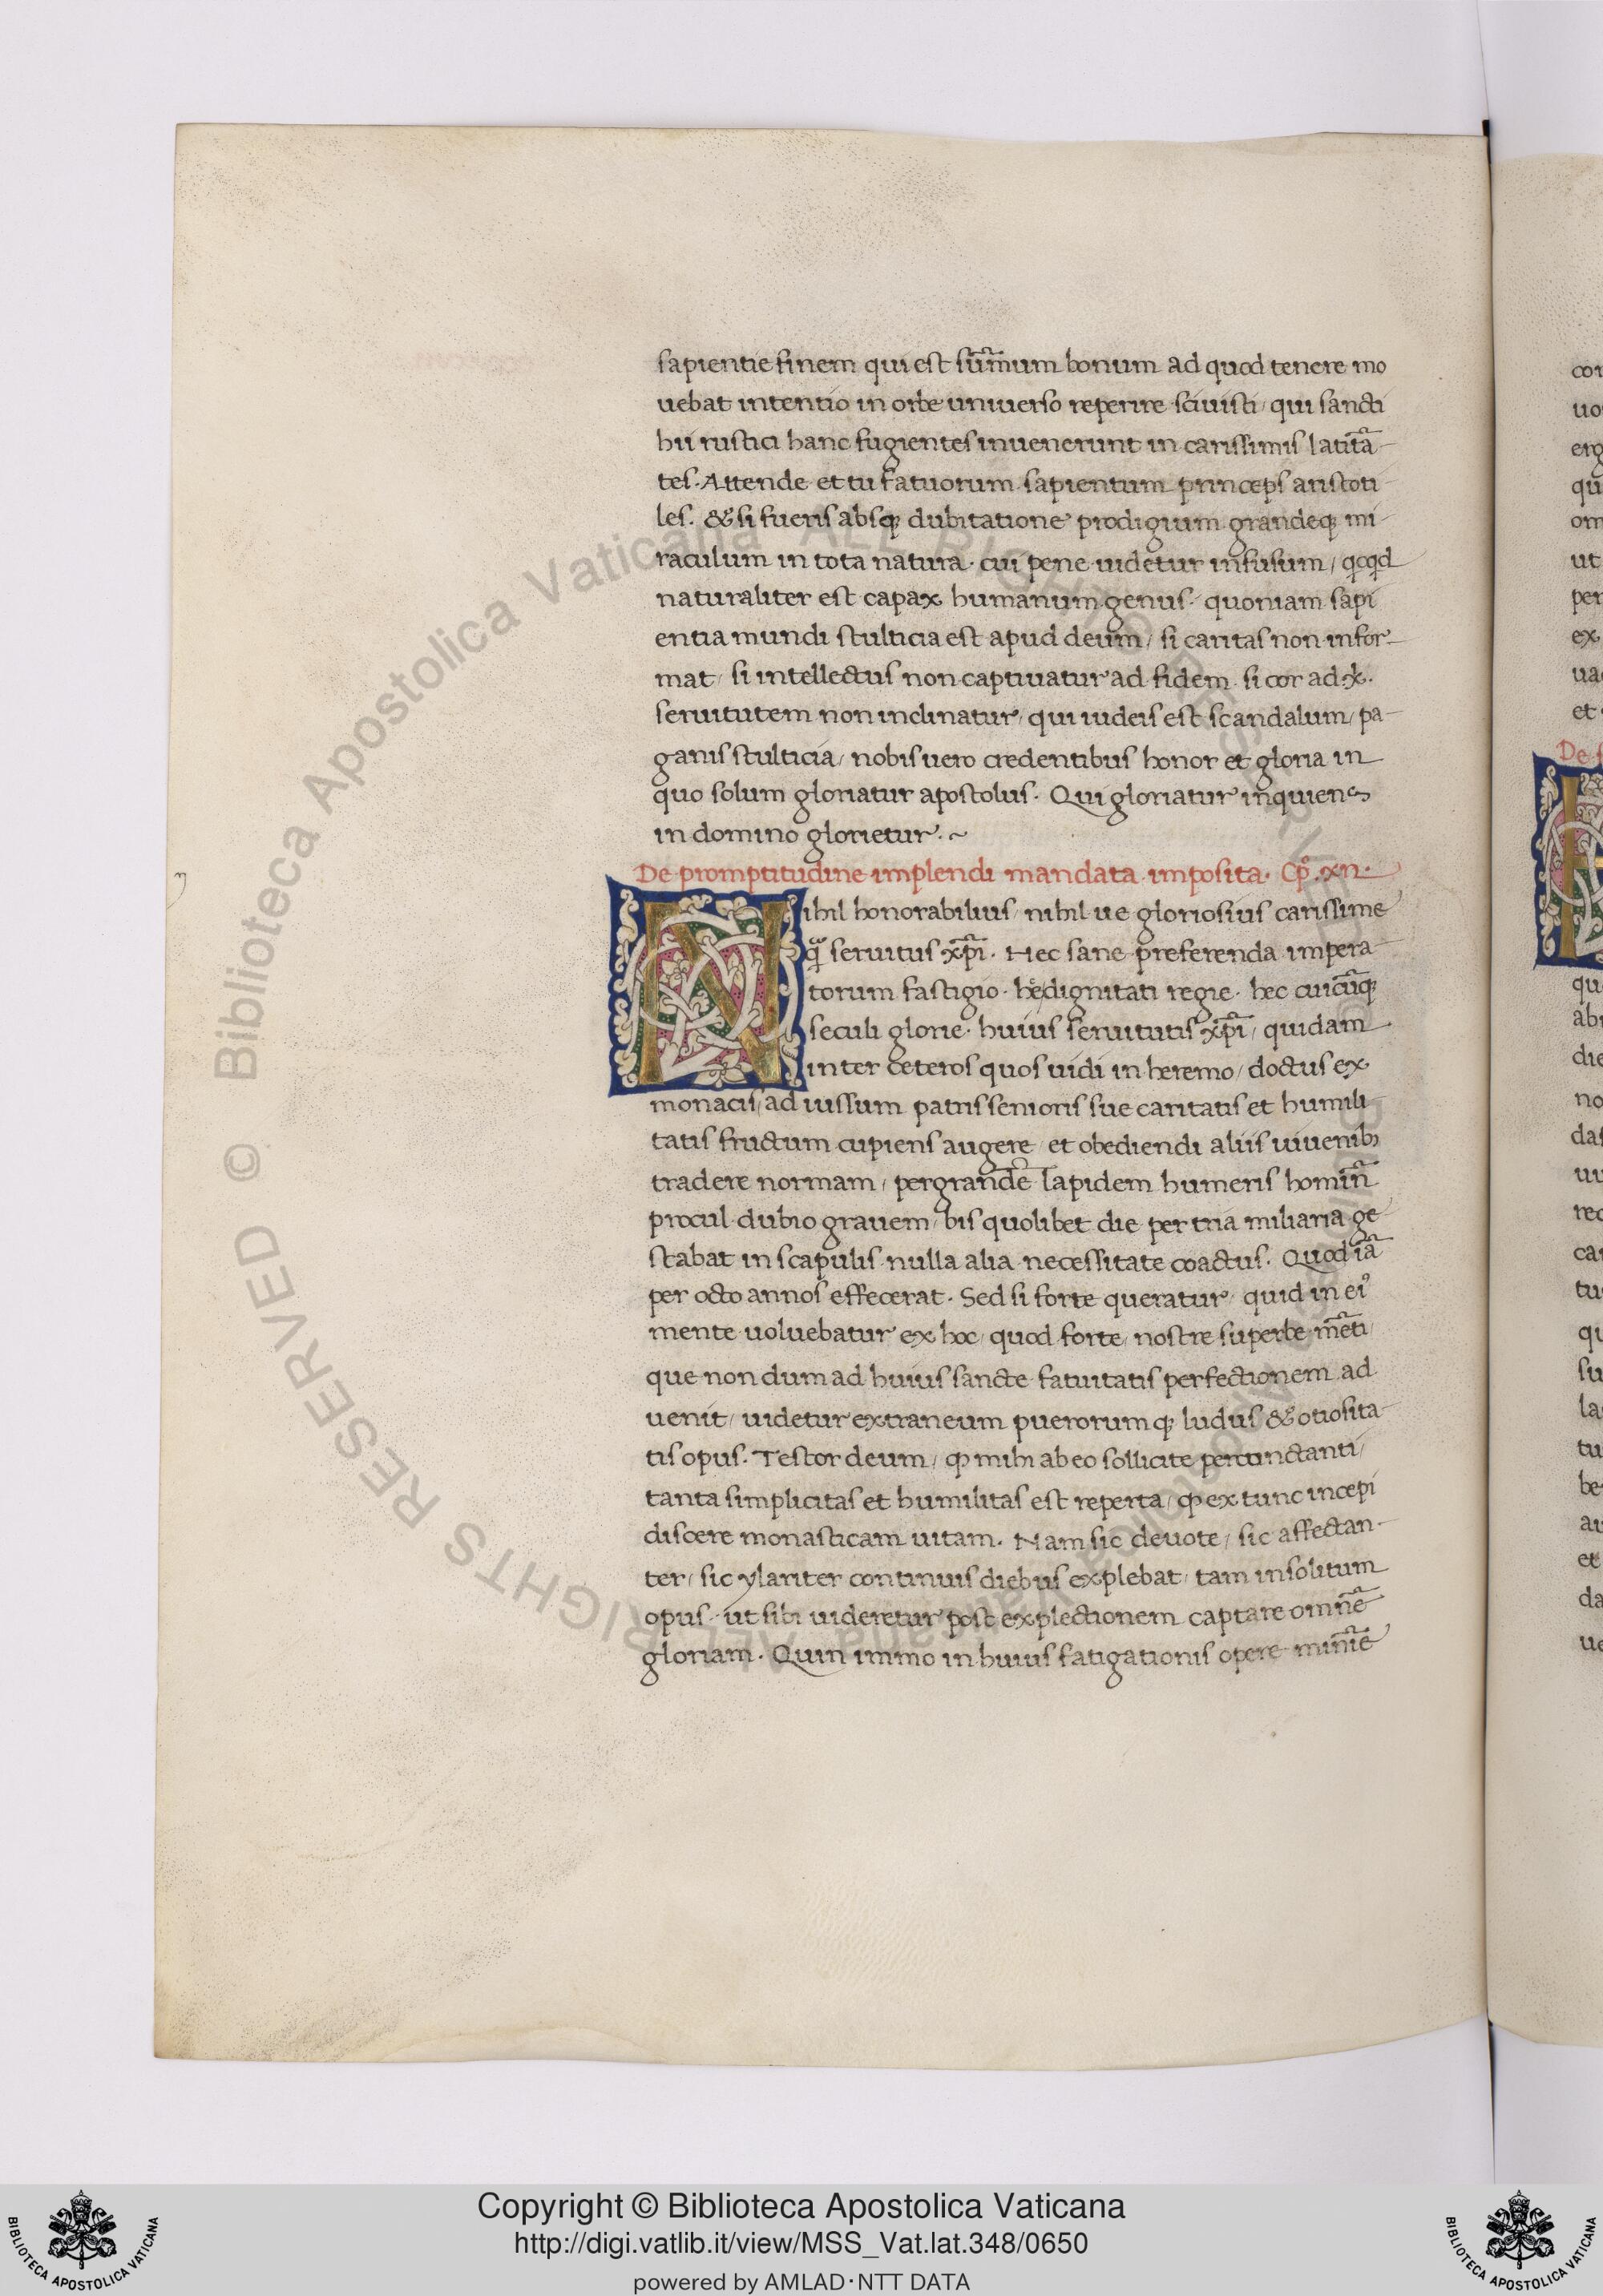 sapientie finem qui est su̅m̅um bonum ad quod tenere mo
uebat intentio in orbe uniuerso reperire sciuisti/ qui sancti
hii rustici hanc fugientes inuenerunt in carissimis latita̅
tes. Attende et tu fatuorum sapientum princeps aristoti
les. & si fueris absq; dubitatione prodigium grandeq; mi
raculum in tota natura. cui pene uidetur infusum/ qcqd
naturaliter est capax humanum genus. quoniam sapi
entia mundi stulticia est apud deum/ si caritas non infor
mat/ si intellectus non captiuatur ad fidem. si cor ad x̅.
seruitutem non inclinatur/ qui iudeis est scandalum/ pa
ganis stulticia/ nobis uero credentibus honor et gloria in
quo solum gloriatur apostolus. Qui gloriatur inquiens
in domino glorietur. ~
De promptitudine implendi mandata imposita. Cp̊. xii.
Nihil honorabilius/ nihil ue gloriosius carissime
qͣ̃ seruitus xp̅i. Nec sane preferenda impera
torum fastigio. hec dignitati regie. hec cuicu̅q;
seculi glorie. huius seruitutis xp̅i/ quidam
inter ceteros quos uidi in heremo/ doctus ex
monacis/ ad iussum patris senioris sue caritatis et humili
tatis fructum cupiens augere/ et obediendi aliis uiuenib;
tradere normam/ pergrande̅ lapidem humeris homin̅
procul dubio grauem/ bis quolibet die per tria miliaria ge
stabat in scapulis nulla alia necessitate coactus. Quod ia̅
per octo annos effecerat. Sed si forte queratur/ quid in ei9
mente uoluebatur ex hoc/ quod forte/ nostre superbe me̅ti/
que non dum ad huius sancte fatuitatis perfectionem ad
uenit/ uidetur extraneum puerorumq; ludus & otiosita
tis opus. Testor deum/ ꝙ mihi ab eo sollicite percunctanti/
tanta simplicitas et humilitas est reperta/ ꝙ ex tunc incepi
discere monasticam uitam. Nam sic deuote/ sic affectan
ter/ sic ylariter continuis diebus explebat/ tam insolitum
opus. ut sibi uideretur post explectionem captare omne̅
gloriam. Quin immo in huius fatigationis opere mini̅e
De
Copyright © Biblioteca Apostolica Vaticana
http://digi.vatlib.it/view/MSS_Vat.lat.348/0650
powered by AMLAD·NTT DATA
BIBLIOTECA APOSTOLICA VATICANA
BIBLIOTECA APOSTOLICA VATICANA
© Biblioteca Apostolica Vaticana ALL RIGHTS RESERVED
© Biblioteca Apostolica Vaticana ALL RIGHTS RESERVED